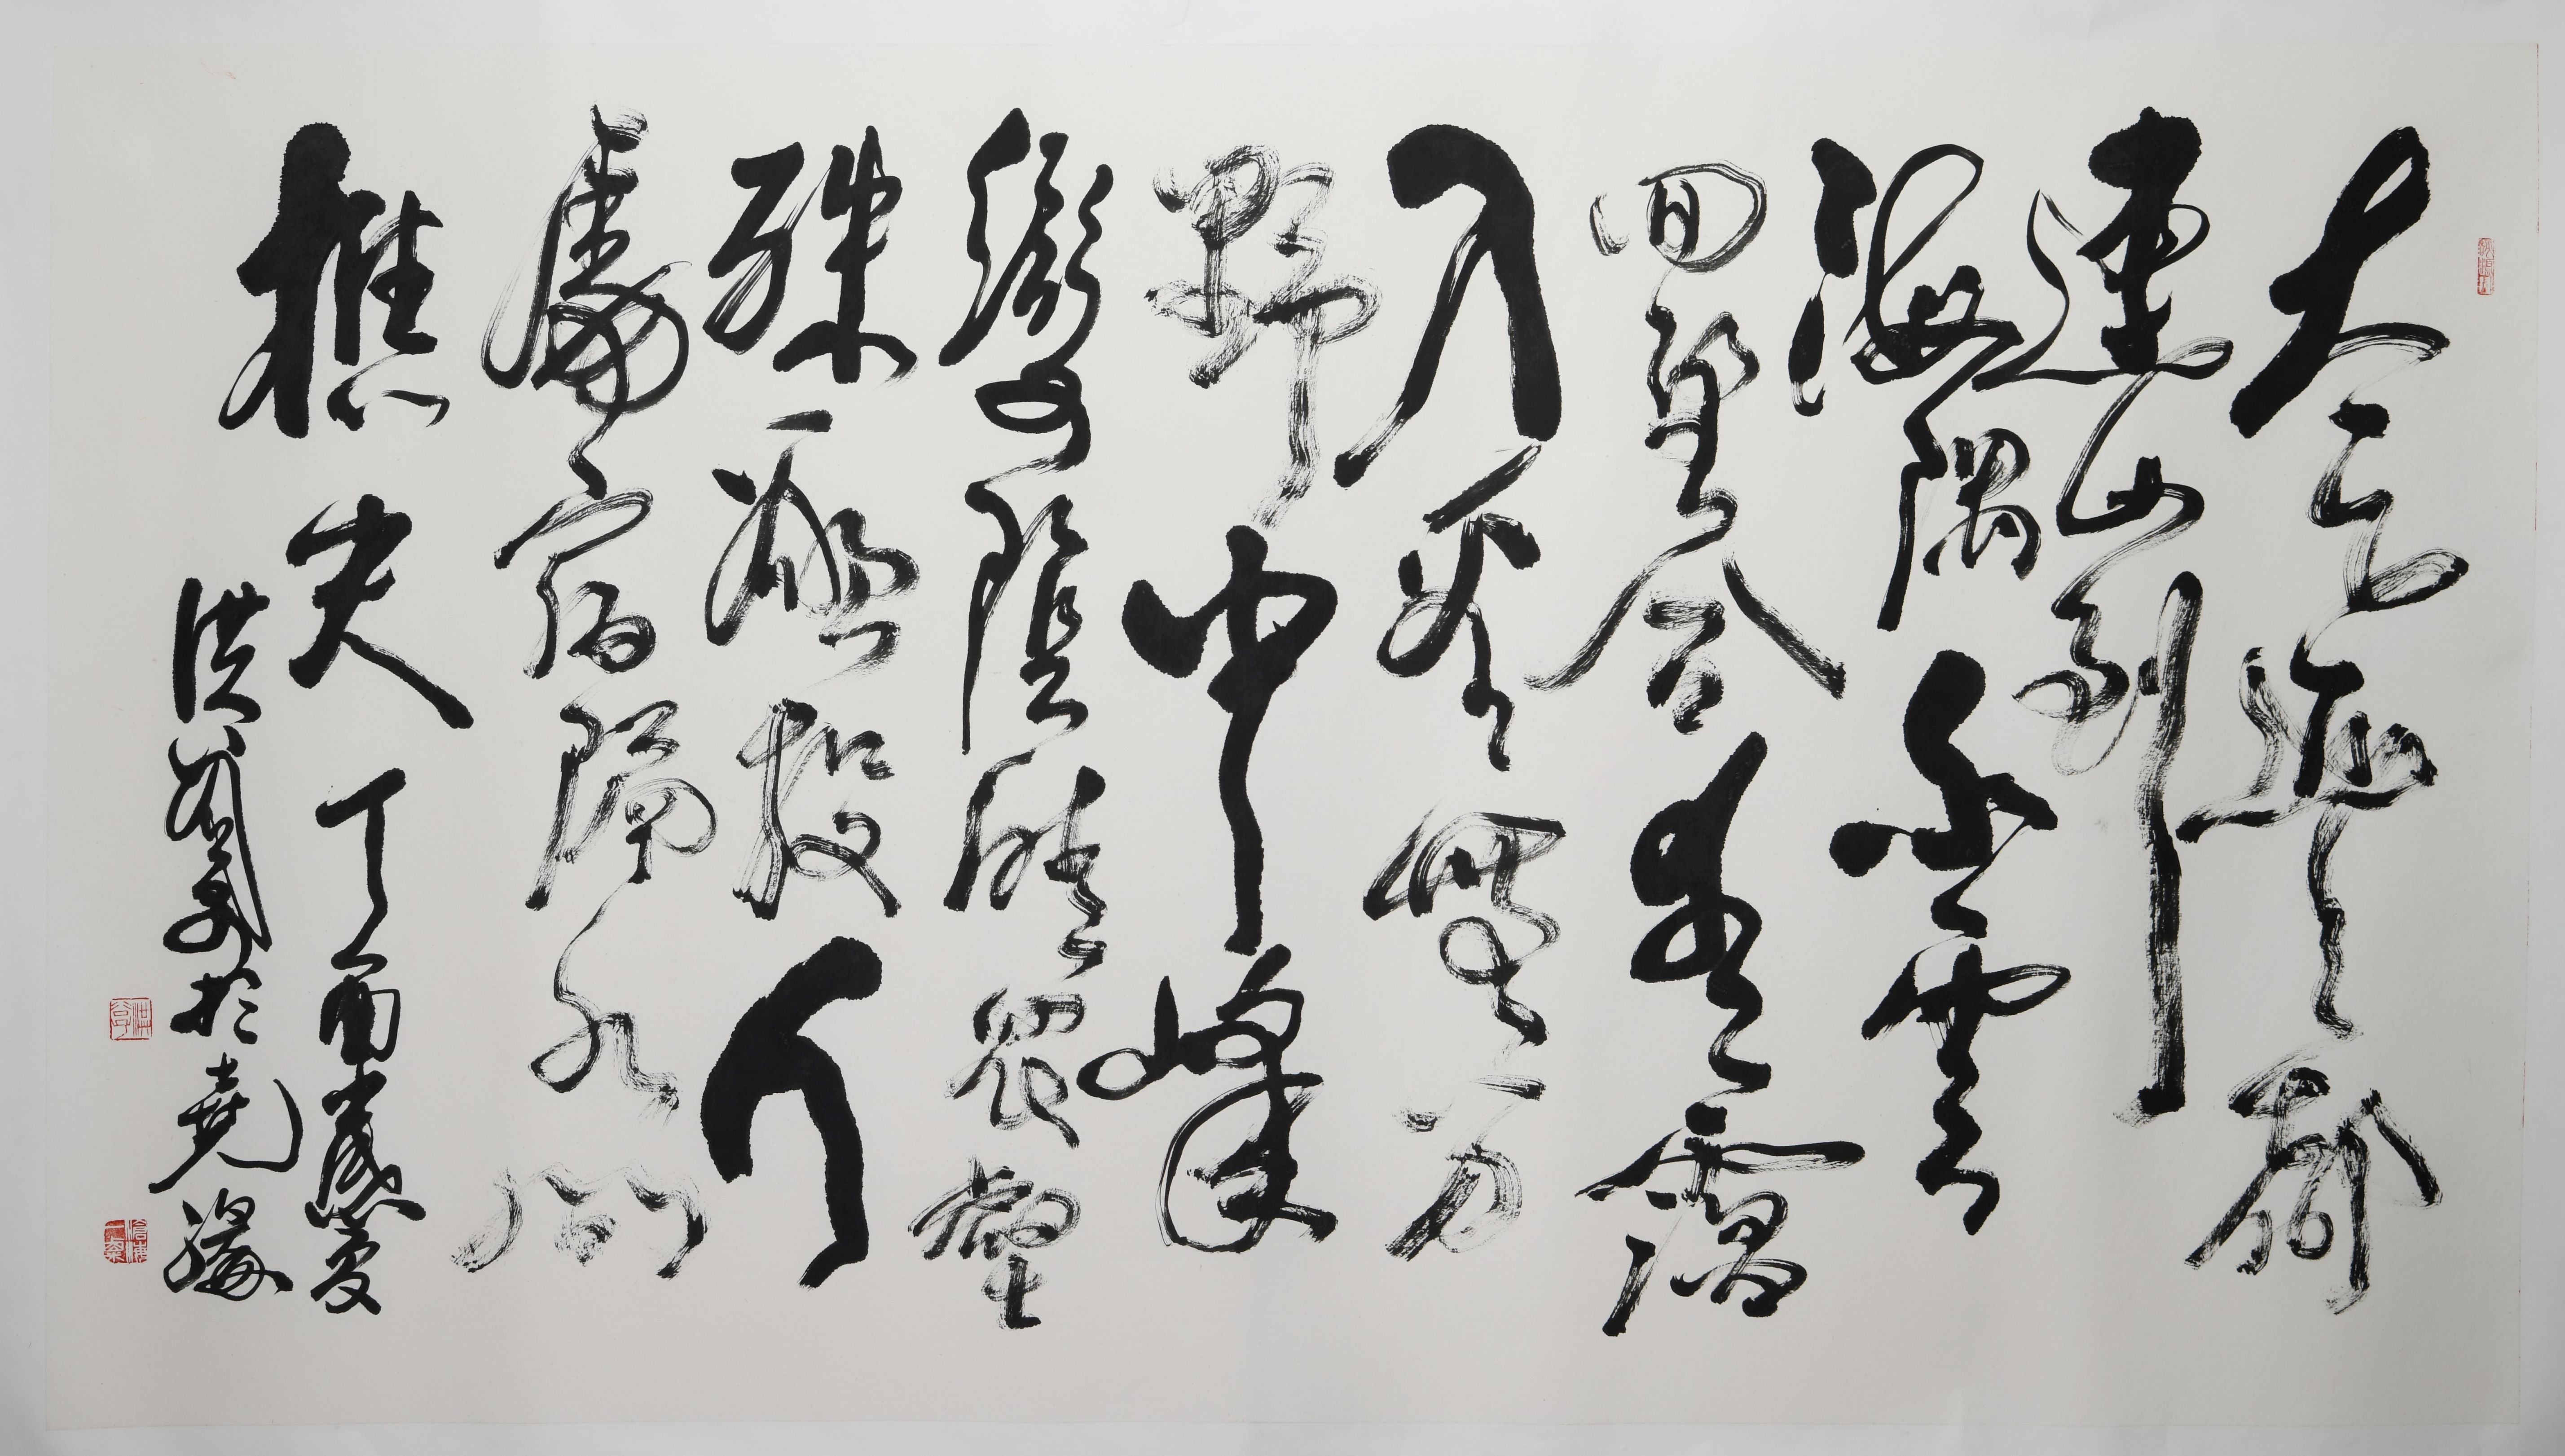 太乙近天都
連山到
海隅白雲
回望合青靄
入看無分
野中峰
變陰晴眾壑
殊欲投人
處宿隔水問
樵夫 丁酉夏
洪於堯